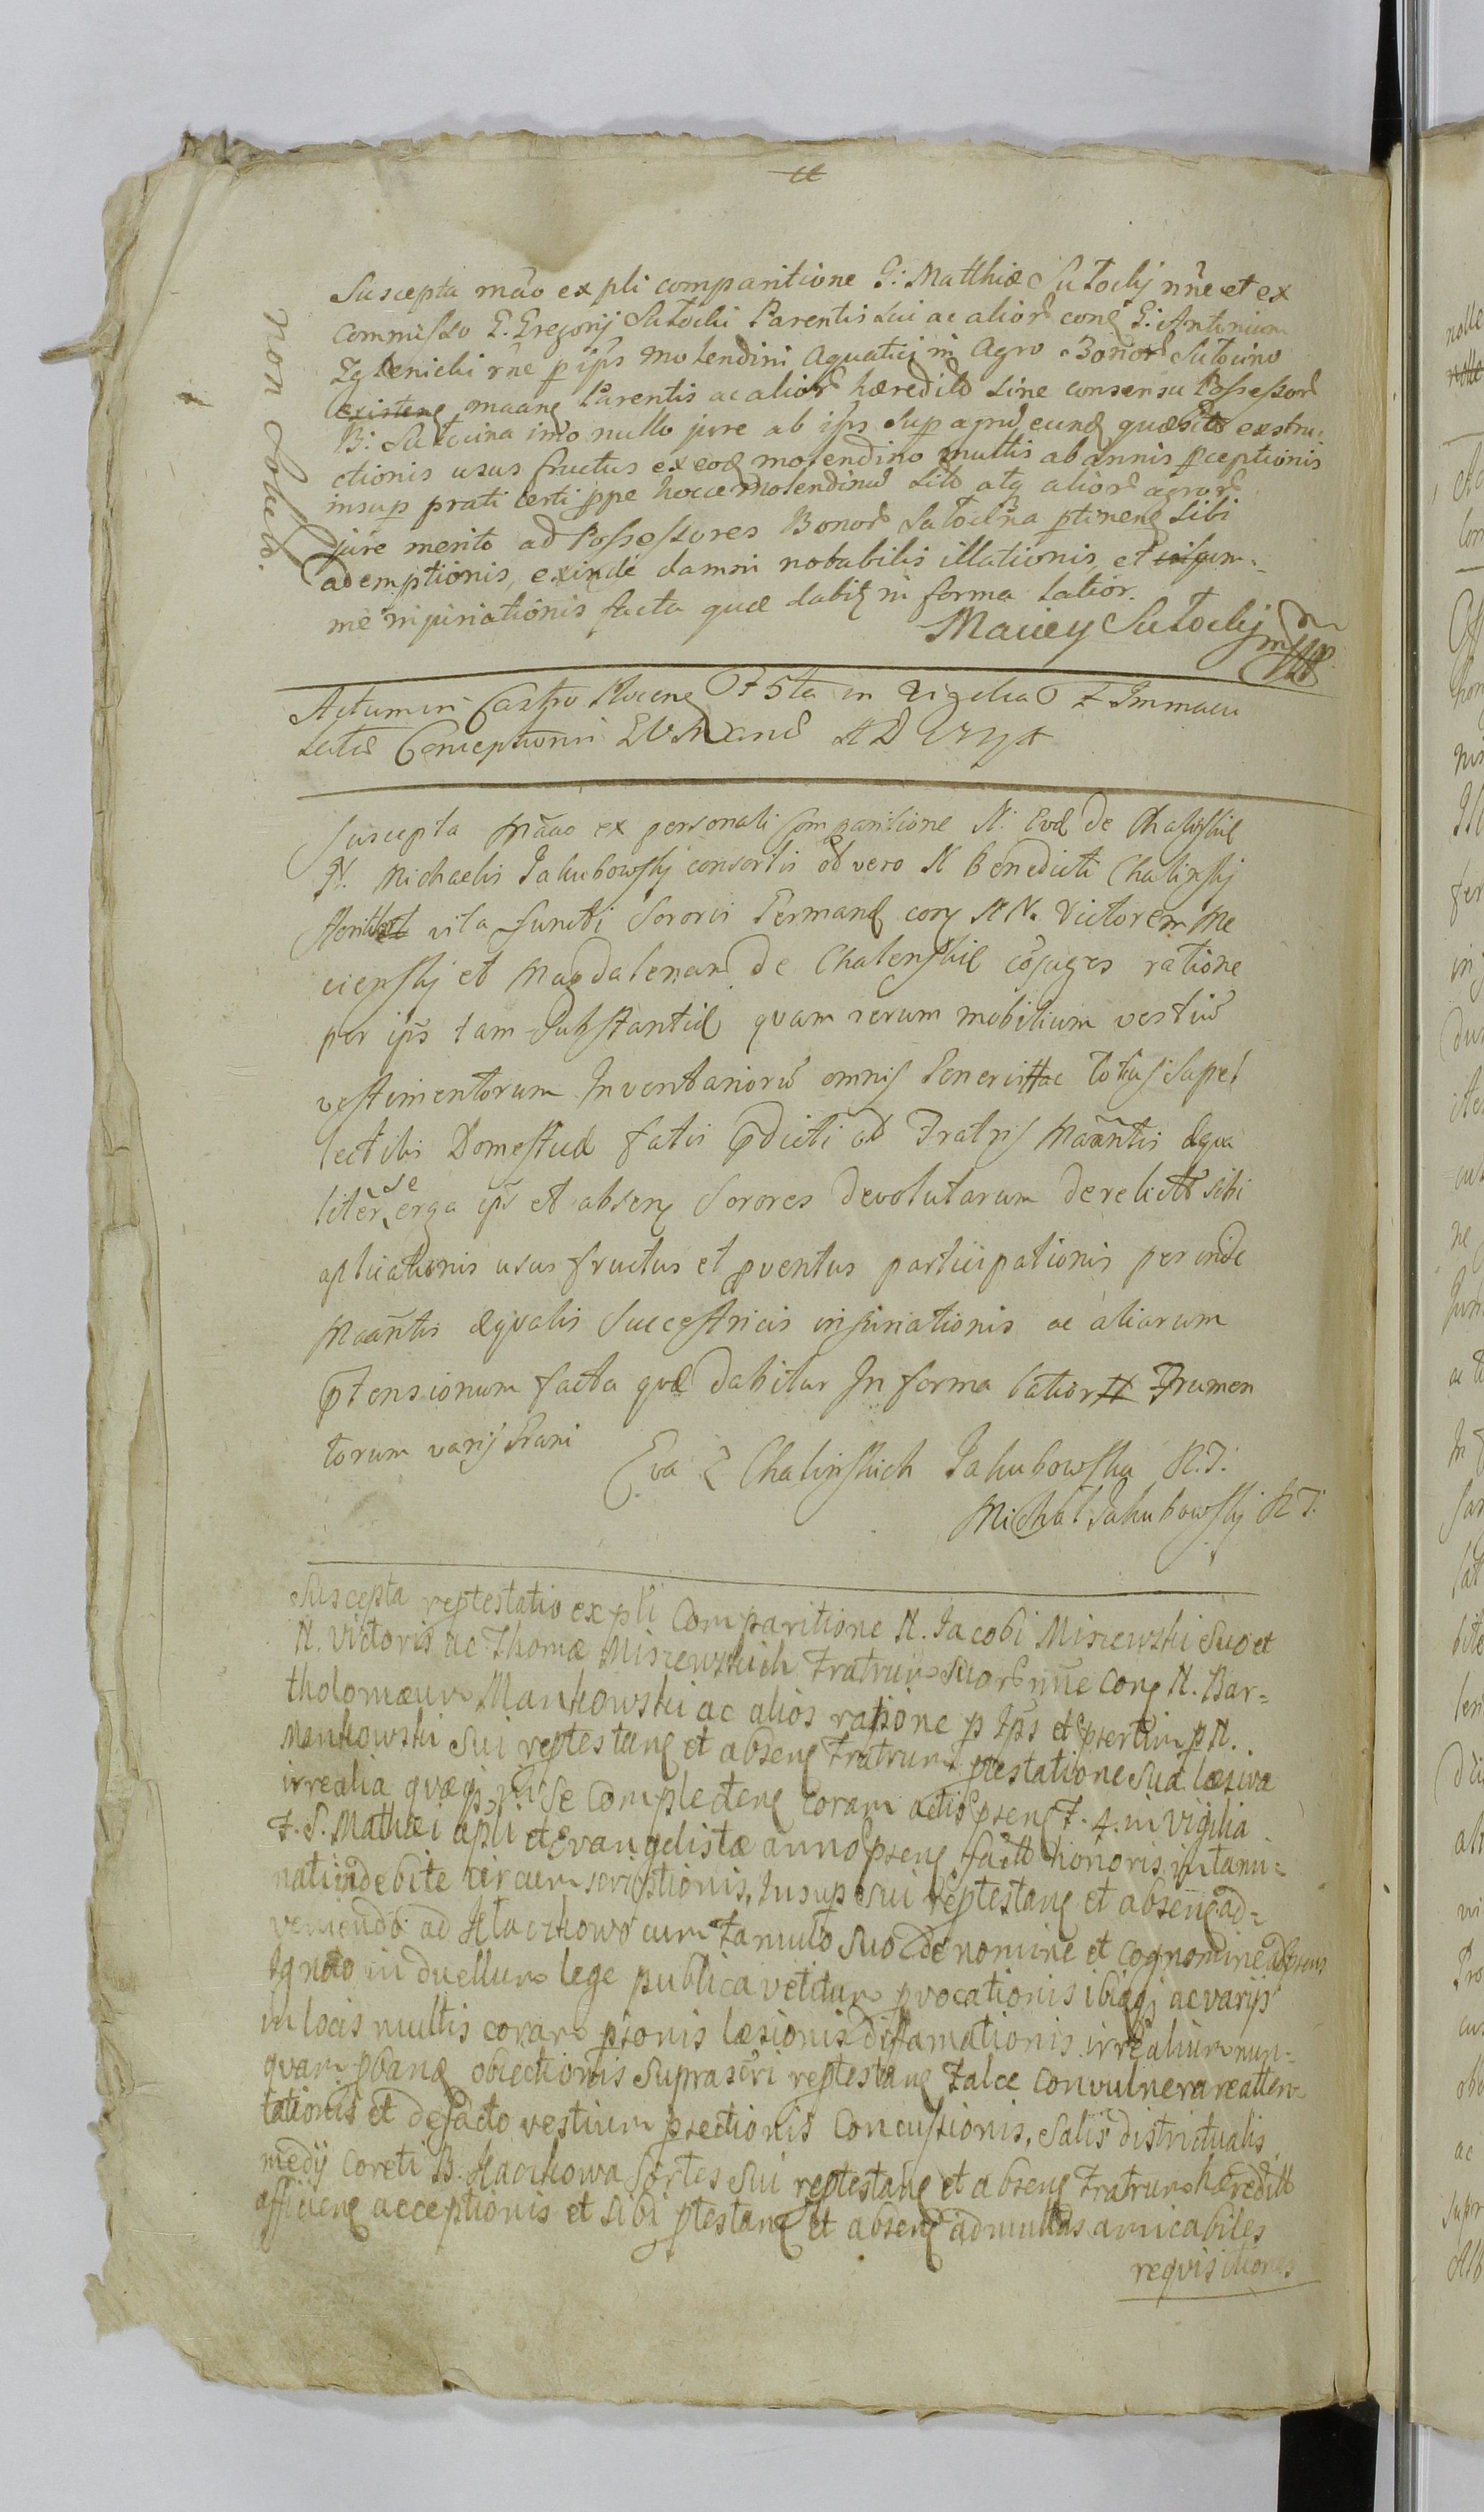 Suscepta mãõ ex pli comparitione G: Matthiæ Sutocky nñe et ex
commisso G. Gregorij Sutocki Parentis sui ac alior conq G: Antonium
Zglenicki rñe p ips molendini aquatici in agro Bonor Sutocino
existenq maanq Parentis ac alior hæredit sine consensu Possessor
B: Sutocina imo nullo jure ab ips sup agrũ eunq quæsito exstru-
ctionis usus fructus ex eod molendino multis ab annis pceptionis
insup prati certi ppe hocce molendinũ sito atq alior agror
jure merito ad Possessores Bonor Sutocina ptinenq sibi
ademptionis, exinde damni notabilis illationis, et sum-
me injuriationis facta quæ dabit in forma latior.
Maciey Sutocky mp
non solut.
Actum in Castro Plocenq F 5ta in Vigilia F Immacu
latæ Conceptionis BVM AD
Suscepta mãao ex personali comparitione N: Evæ de Chalinskie
N. Michaelis Jakubowskj consortis od vero N Benedicti Chalinskj
vita functi Sororis Germanæ conq NN. Victorem Me
cienskj et Magdalenam de Chalenskie cõjuges ratione
per ips tam substantiæ quam rerum mobilium vestiũ
vestimentorum Inventariorũ omnis Generis ac totius supel
lectilis Domesticæ fatis pdicti od Fratris Maañtis æqua
liter se erga ips et absenq Sorores devolutarum derelict sibi
aplicationis usus fructus et pventus participationis per inde
Maañtis æqualis Successtricis injuriationis ac aliarum
ptensionum facta quæ dabitur In forma latior # Frumen
torum varij Grani
Eva z Chalinskich Jakubowska R.T.
Michał Jakubowskj R T.
Suscepta reptestatio ex pli Comparitione N. Jacobi Miszewski Suo et
N. Victoris ac Thomæ Miszewskich Fratrum suor nñe conq N. Bar-
tholomæum Mankowski ac alios ratione p Ips et psertim p N.
Mankowski Sui reptestanq et absenq Fratrum ptestatione sua læsiva
irrealia quæq in se complectenq coram actis psenq F. 4. in Vigilia
F. S. Mathæi apli et Evangelistæ anno psenq fact honoris intami-
nati indebite circumscriptionis, Insup sui reptestanq et absenq ad-
veniendo ad Kłaczkowo cum Famulo suo de nomine et cognomine ad psens
Ignoto in duellum lege publica vetitum pvocationis ibiq ac varijs
in locis multis coram psonis læsionis diffamationis irrealium nun-
quam pbanq obiectionis Suprascri reptestanq Falce convulnerare atten-
tationis et de facto vestium psectionis Concussionis, Salis districtualis
medij coreti B. Kłaczkowa sortes sui reptestanq et absenq Fratrum hæredit
afficienq acceptionis et sibi ptestanq et absenq ad multas amicabiles
requisitiones